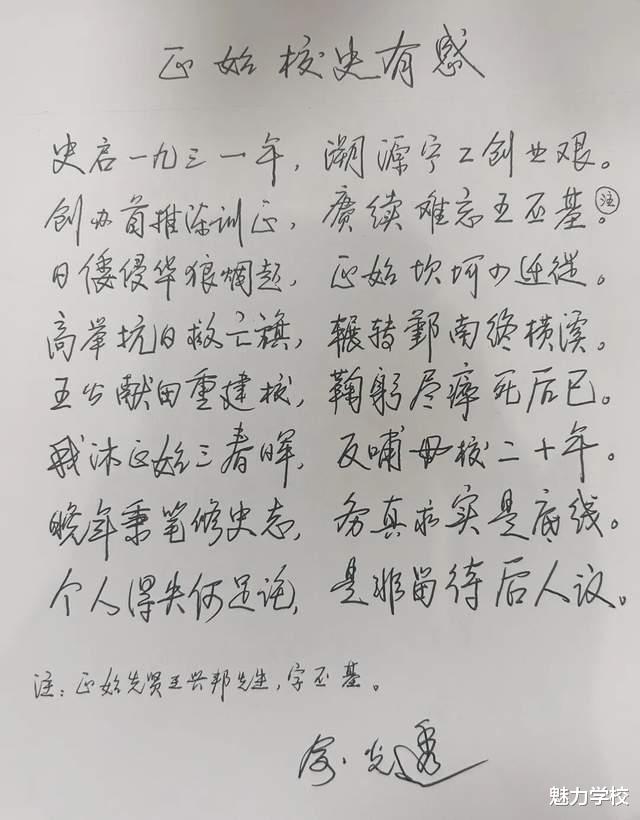 正始校史有感
史启一九三一年，溯源宁工创业艰。
创办首推陈训正，赓续难忘王丕基。注
日倭侵华狼烟起，正始坎坷多迁徙。
高举抗日救亡旗，辗转鄞南终横溪。
王公献田重建校，鞠躬尽瘁死后已。
我沐正始三春晖，反哺母校二十年。
晚年秉笔修史志，务真求实是底线。
个人得失何足诧，是非留待后人议。
注：正始先贤王兴邦先生，字丕基。
魅力学校